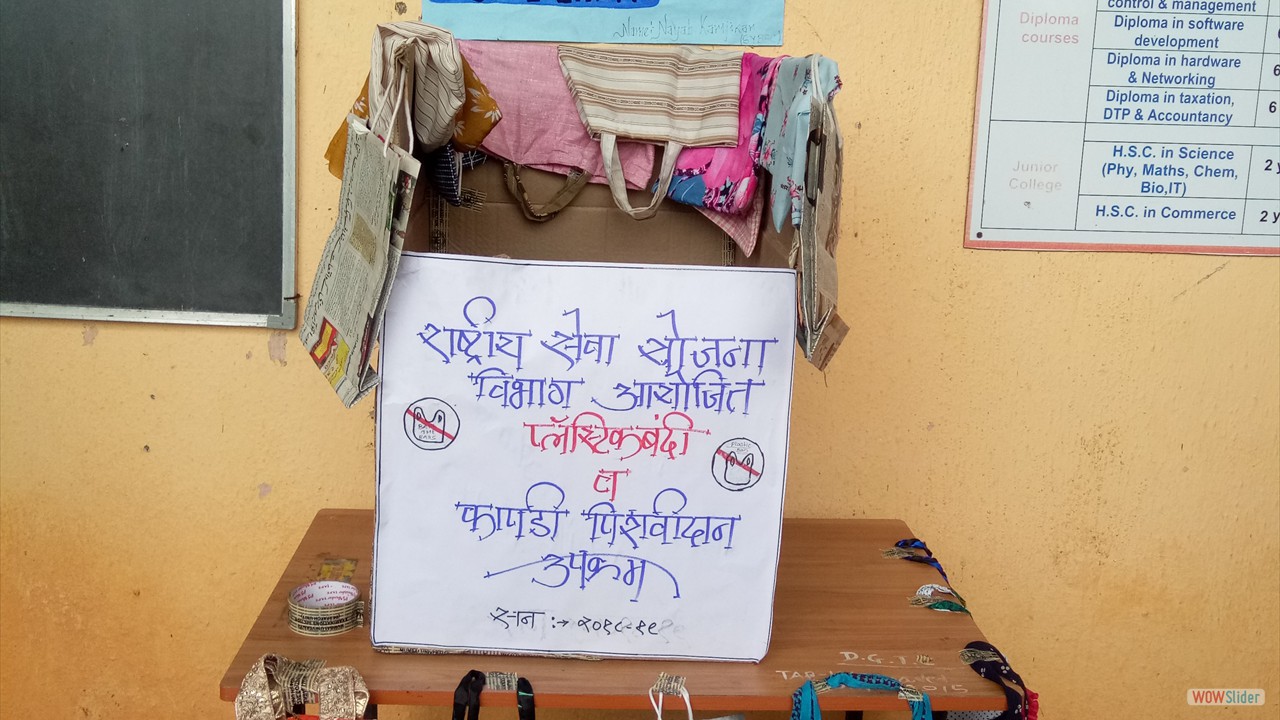 Name: Nayab Karijikan
control & management
Diploma courses
Diploma in software development
Diploma in hardware & Networking
6
Diploma in taxation, DTP & Accountancy
6
Junior College
H.S.C. in Science (Phy, Maths, Chem, Bio,IT)
2 y
H.S.C. in Commerce
2 y
राष्ट्रीय सेवा योजना
विभाग आयोजित
प्लॅस्टिकबंदी
व
कापडी पिशवीदान
उपक्रम
सन :→ २०१८-१९
D.G.T.
2015
WOWSlider